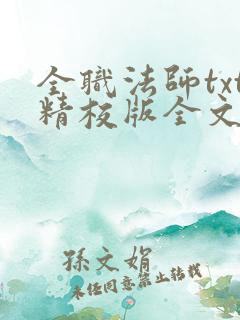 全職法師txt
精校版全文
孫文娟
未經同意禁止轉載